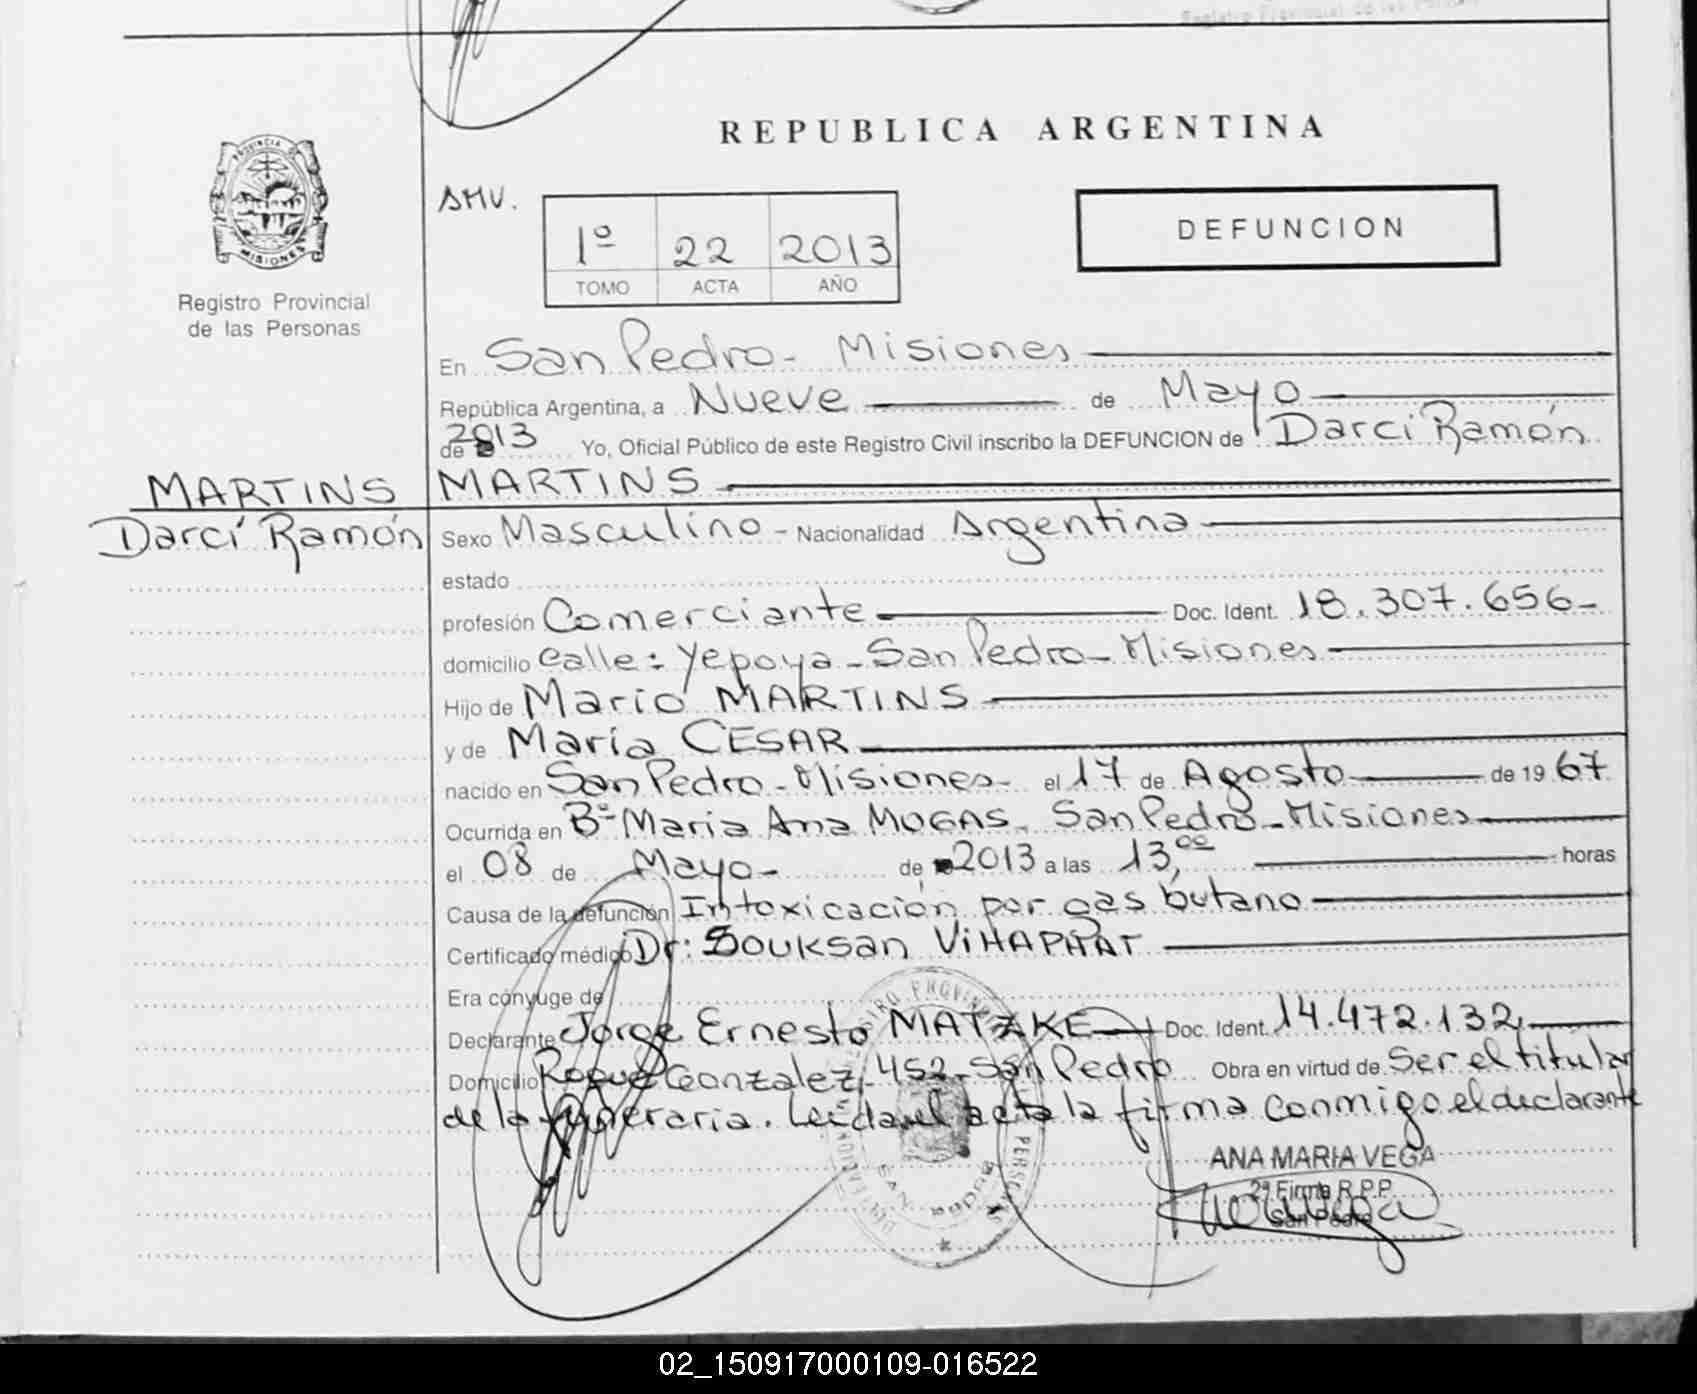 REPUBLICA ARGENTINA
PROVINCIA D
MISIONES
Registro Provincial
de las Personas
AMV.
1º 22 2013
TOMO ACTA AÑO
DEFUNCION
En San Pedro - Misiones
República Argentina, a Nueve de Mayo
de 2013 Yo, Oficial Público de este Registro Civil inscribo la DEFUNCION de Darci Ramón
MARTINS
MARTINS
Darcí Ramón
Sexo Masculino - Nacionalidad Argentina
estado
profesión Comerciante Doc. Ident. 18.307.656-
domicilio Calle: Yepoya - San Pedro - Misiones
Hijo de Mario MARTINS
y de María CESAR
nacido en San Pedro - Misiones - el 17 de Agosto de 19 67
Ocurrida en Bº Maria Ana MOGAS - San Pedro - Misiones
el 08 de Mayo - de 2013 a las 13,00 horas
Causa de la defunción Intoxicación por gas butano
Certificado médico Dr: Souksan VIHAPHAT
Era cónyuge de
Declarante Jorge Ernesto MATZKE Doc. Ident. 14.472.132
Domicilio Roque Gonzalez - 452 - San Pedro Obra en virtud de Ser el titular
de la funeraria. Leída el acta la firma conmigo el declarante
ANA MARIA VEGA
2ª Firma R.P.P.
San Pedro
02_150917000109-016522